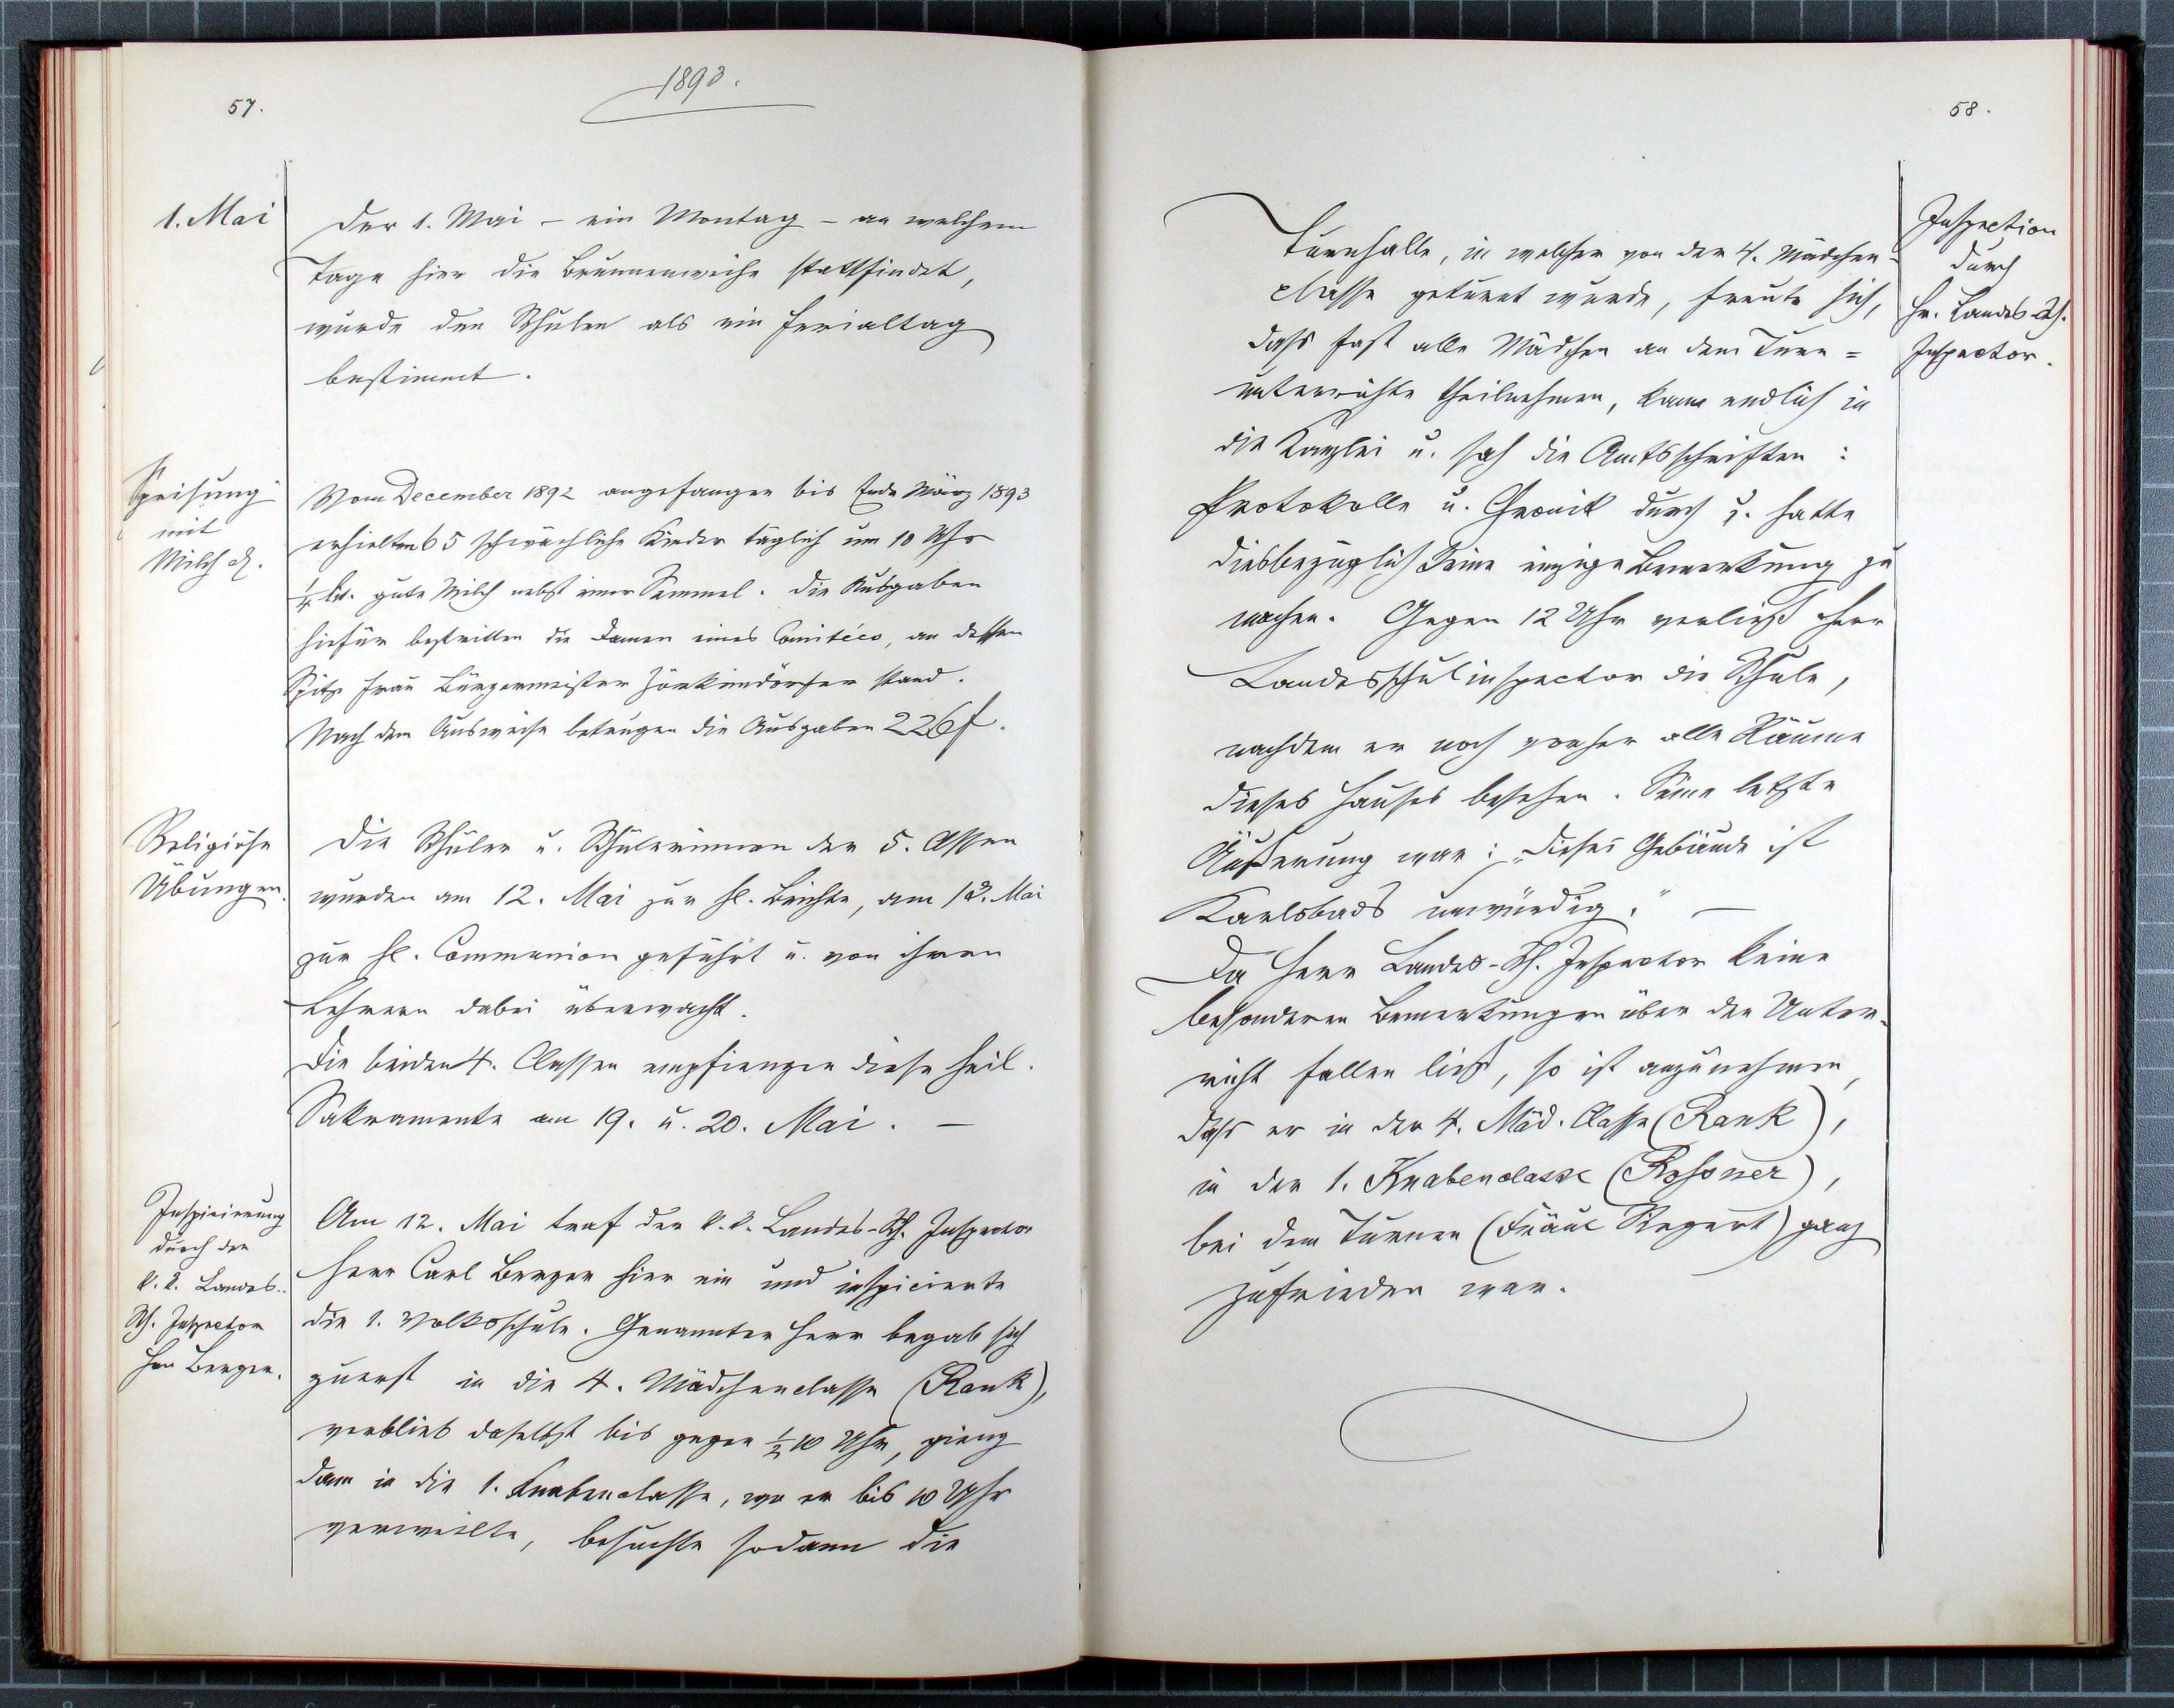 1893.
57.
1. Mai
Der 1. Mai – ein Montag – an welchem
Tage hier die Brunnenweihe stattfindet,
wurde den Schulen als ein Ferialtag
bestimmt.
Speisung
mit
Milch
Vom December 1892 angefangen bis Ende März 1893
erhielten 65 schwächliche Kinder täglich um 10 Uhr
¼ lit. gute Milch nebst einer Semmel. Die Ausgaben
hiefür bestritten die Damen eines Comitées, an dessen
Spitze Frau Bürgermeister Zörkendörfer stand.
Nach dem Ausweise betrugen die Ausgaben 226 f.
Religiöse
Übungen.
Die Schüler u. Schülerinnen der 5. Classen
wurden am 12. Mai zur hl. Beichte, am 13. Mai
zur hl. Communion geführt u. von ihren
Lehrern dabei überwacht.
Die beiden 4. Classen empfiengen diese heil.
Sakramente am 19. u. 20. Mai. —
Inspicierung
durch den
k. k. Landes-
Sch. Inspector
Herr Berger.
Am 12. Mai traf der k. k. Landes-Sch. Inspector
Herr Carl Berger hier ein und inspicierte
die 1. Volksschule. Genannter Herr begab sich
zuerst in die 4. Mädchenclasse (Rank),
verblieb daselbst bis gegen ½ 10 Uhr, gieng
dann in die 1. Knabenclasse, wo er bis 10 Uhr
verweilte, besuchte sodann die
58.
Inspection
durch
Hr. Landes-Sch.
Inspector.
Turnhalle, in welcher von der 4. Mädchen-
classe geturnt wurde, freute sich,
dass fast alle Mädchen an dem Turn=
unterrichte theilnehmen, kam endlich in
die Kanzlei u. sah die Amtsschriften:
Protokolle u. Chronik durch u. hatte
diesbezüglich keine einzige Bemerkung zu
machen. Gegen 12 Uhr verließ Herr
Landesschulinspector die Schule,
nachdem er noch vorher alle Räume
dieses Hauses besehen. Seine letzte
Äußerung war: „Dieses Gebäude ist
Karlsbads unwürdig." —
Da Herr Landes-Sch. Inspector keine
besonderen Bemerkungen über den Unter-
richt fallen ließ, so ist anzunehmen,
dass er in der 4. Mäd. Classe (Rank),
in der 1. Knabenclasse
bei dem Turnen ganz
zufrieden war.